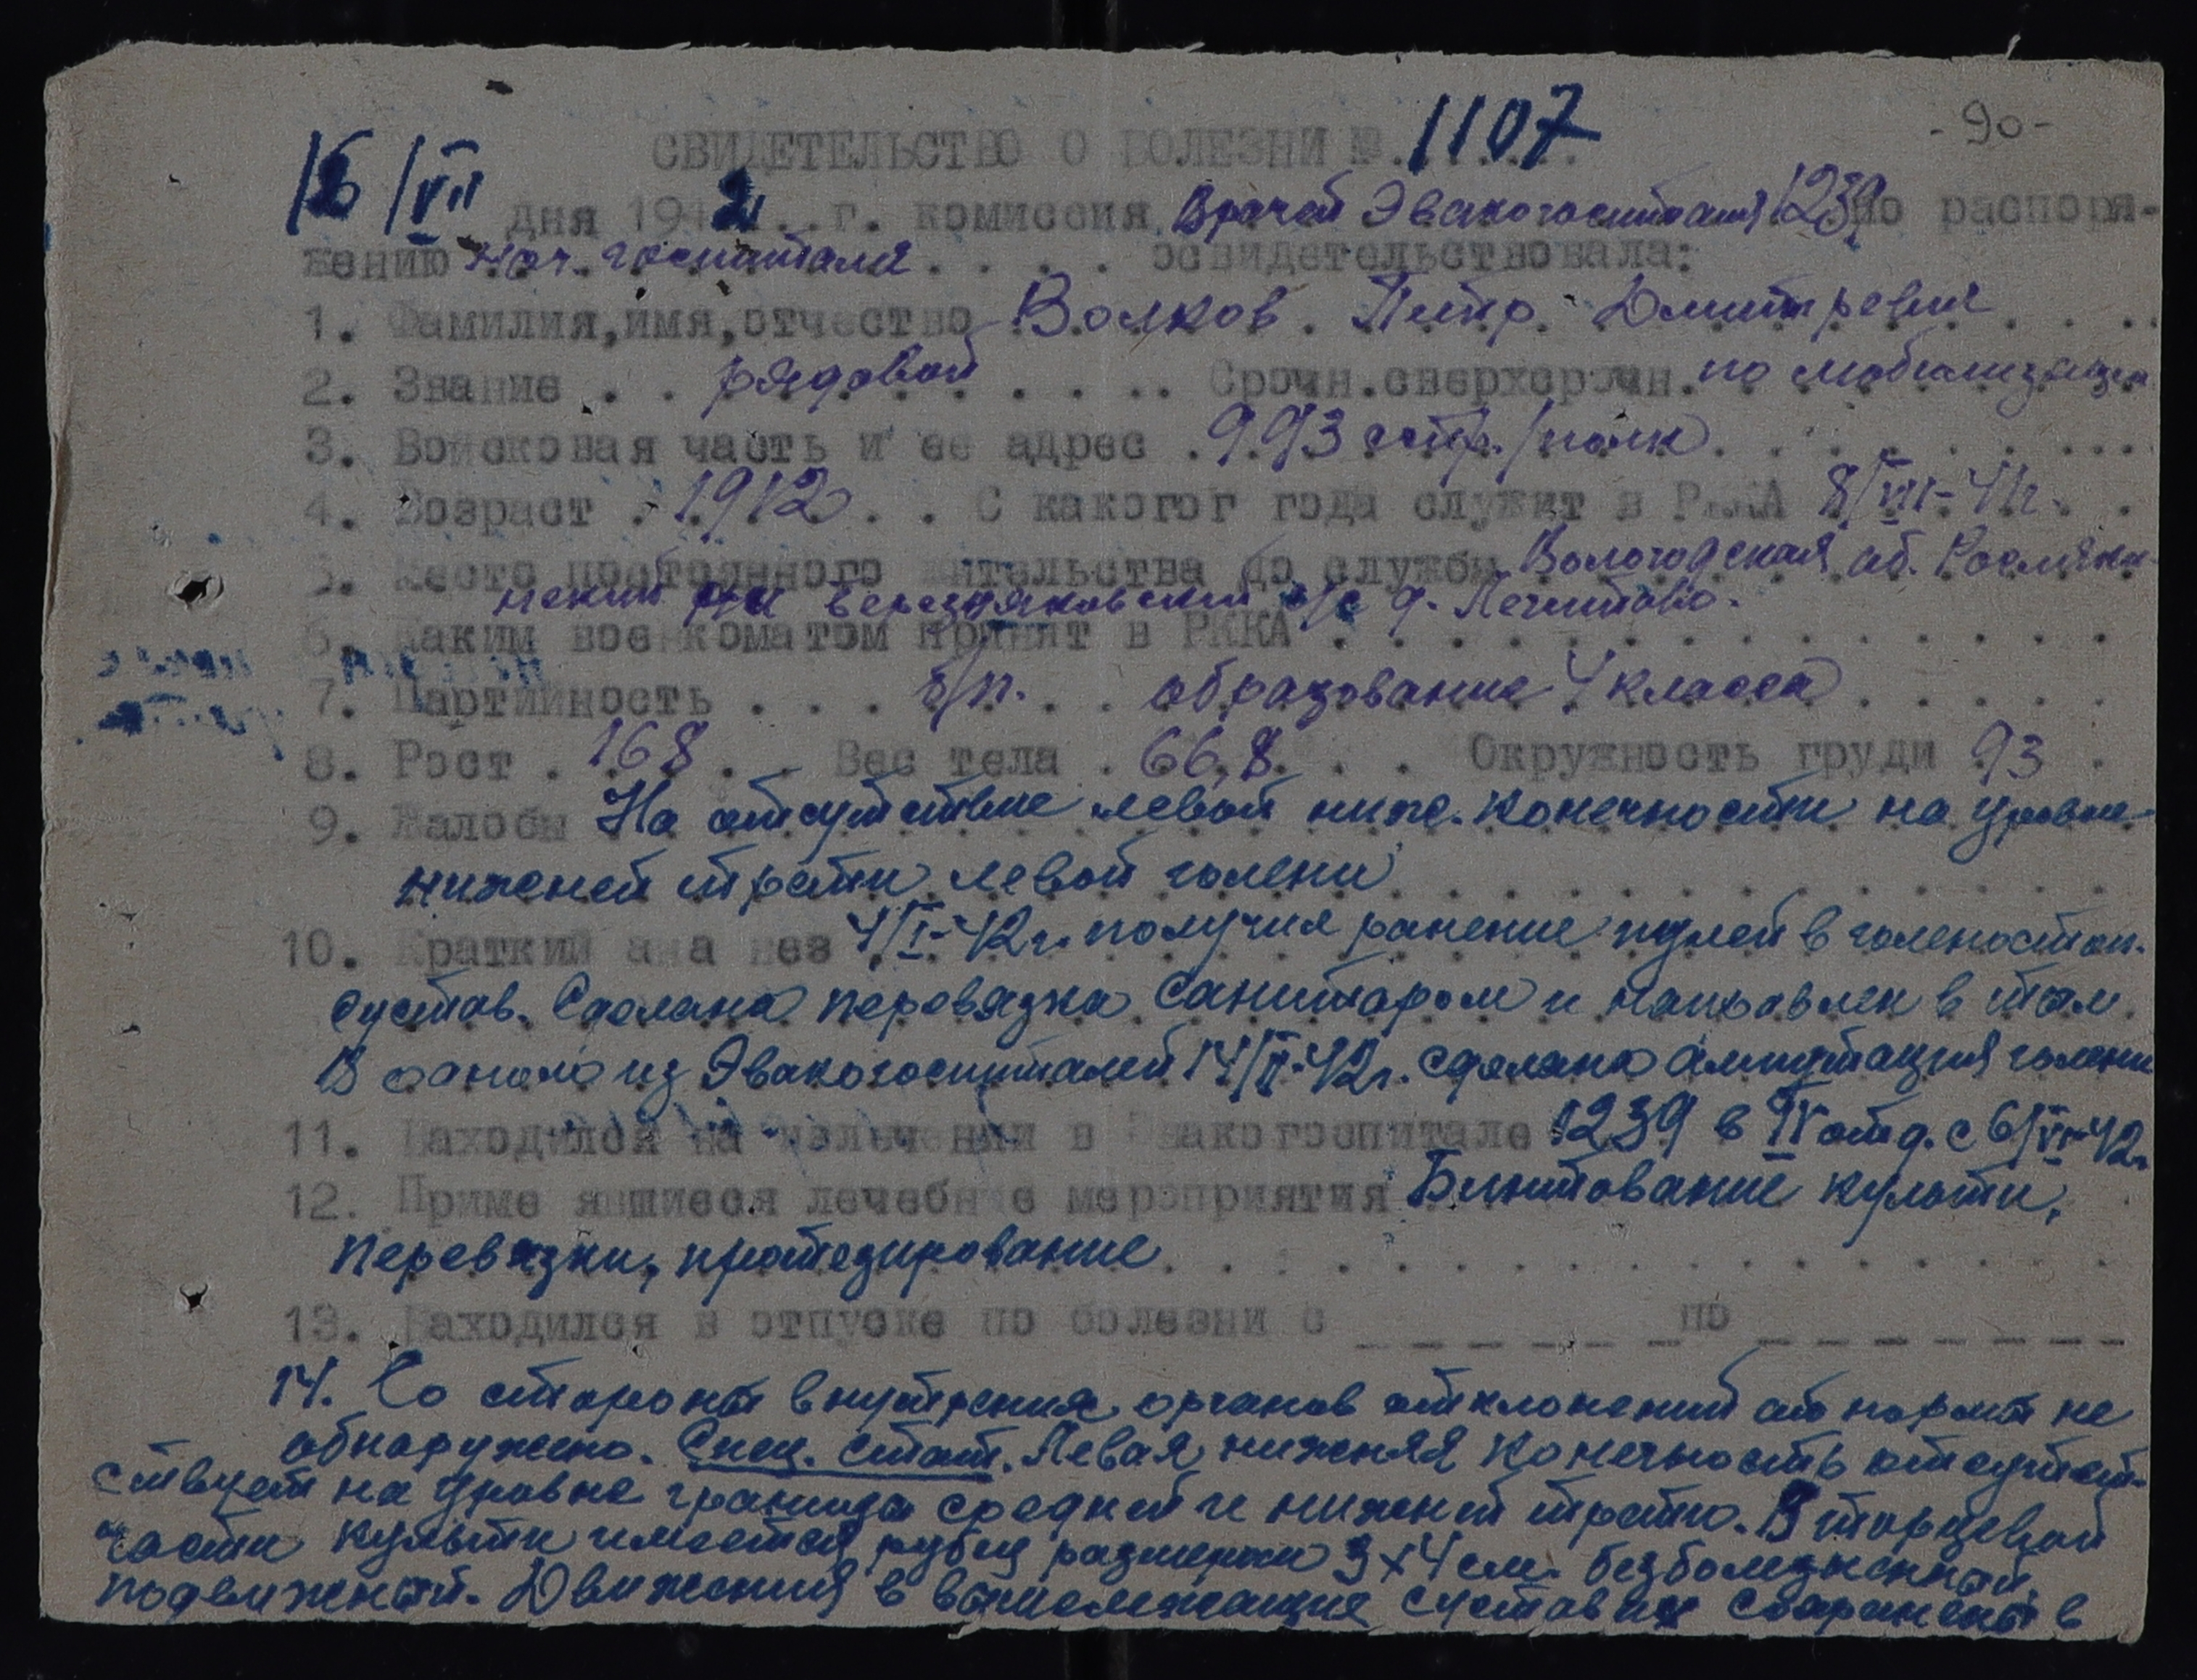 -90-
СВИДЕТЕЛЬСТВО О БОЛЕЗНИ № 1107
16/VII дня 1942 г. комиссия врачей Эвакогоспиталя 1239 по распоря-
жению нач. госпиталя . . . . освидетельствовала:
1. Фамилия,имя,отчество Волков Петр Дмитревич
2. Звание . . рядовой . . . . . Срочн.сверхсрочн. по мобилизации
3. Войсковая часть и ее адрес . 993 стр./полк
4. Возраст . 1912 . . С какогог года служит в РККА 8/VIII-41г.
5. Место постоянного жительства до службы Вологодская об. Рослятин-
нский р-н Березняковский с/с д.
6. Каким военкоматом принят в РККА . . . . . . . . . . . . . .
7. Партийность . . . б/п. . . образование 4 класса
8. Рост . 168 . . Вес тела . 66,8 . . . Окружность груди 93
9. Жалобы На отсутствие левой ниж. конечности на уровне
нижней трети левой голени
10. Краткий анамнез 4/I-42г. получил ранение пулей в голеностоп.
сустав. Сделана перевязка санитаром и направлен в тыл.
В одном из Эвакогоспиталей 14/II-42г. сделана ампутация голени
11. Находился на излечении в Эвакогоспитале 1239 в IV отд. с 6/VI-42г.
12. Применявшиеся лечебные мероприятия Бинтование культи,
перевязки, протезирование
13. Находился в отпуске по болезни с _ _ _ _ _ _ по _ _ _ _ _ _ _
14. Со стороны внутрених органов отклонений от нормы не
обнаружено. Спец. стат. Левая нижняя конечность отсутст-
ствует на уровне границы средней и нижней трети. В торцевой
части культи имеется рубец размером 3х4 см. безболезненный,
подвижный. Движения в вышележащие суставах сохранены в